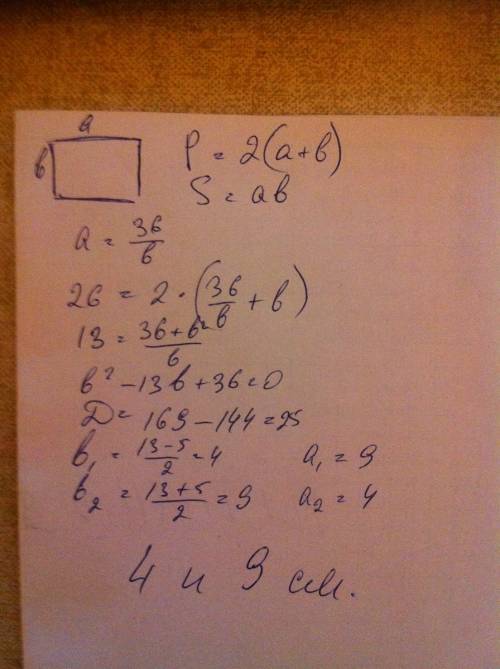 a
b
P = 2(a+b)
S = ab
a = 36/b
26 = 2 · (36/b + b)
13 = (36+b²)/b
b² - 13b + 36 = 0
D = 169 - 144 = 25
b₁ = (13-5)/2 = 4 a₁ = 9
b₂ = (13+5)/2 = 9 a₂ = 4
4 и 9 см.